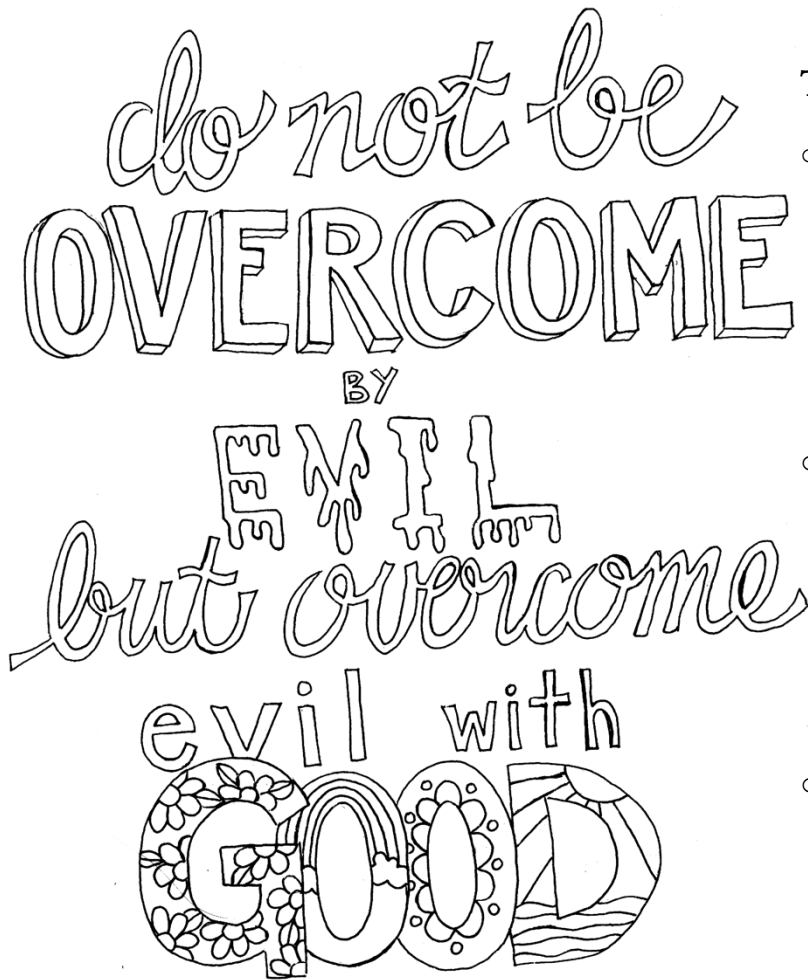 do not be
OVERCOME
BY
EVIL
but overcome
evil with
GOOD